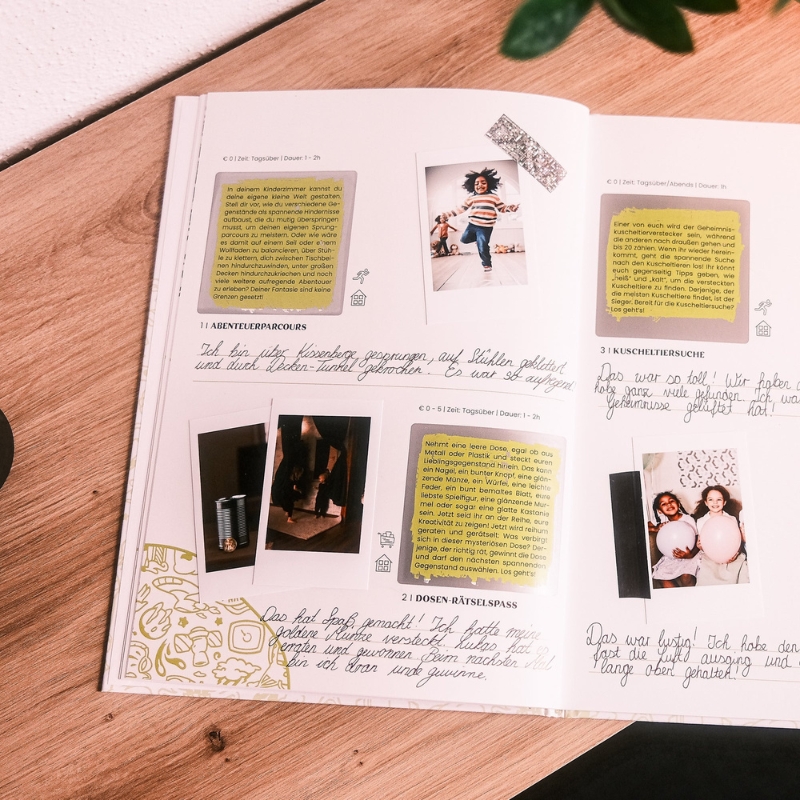 € 0 | Zeit: Tagsüber | Dauer: 1 - 2h
In deinem Kinderzimmer kannst du
deine eigene kleine Welt gestalten.
Stell dir vor, wie du verschiedene Ge-
genstände als spannende Hindernisse
aufbaust, die du mutig überspringen
musst, um deinen eigenen Sprung-
parcours zu meistern. Oder wie wäre
es damit auf einem Seil oder einem
Wollfaden zu balancieren, über Stüh-
le zu klettern, dich zwischen Tischbei-
nen hindurchzuwinden, unter großen
Decken hindurchzukriechen und noch
viele weitere aufregende Abenteuer
zu erleben? Deiner Fantasie sind keine
Grenzen gesetzt!
1 | ABENTEUERPARCOURS
Ich bin über Kissenberge gesprungen, auf Stühlen geklettert
und durch Decken-Tunkel gekrochen. Es war so aufregend
€ 0 - 5 | Zeit: Tagsüber | Dauer: 1 - 2h
Nehmt eine leere Dose, egal ob aus
Metall oder Plastik und steckt euren
Lieblingsgegenstand hinein. Das kann
ein Nagel, ein bunter Knopf, eine glän-
zende Münze, ein Würfel, eine leichte
Feder, ein bunt bemaltes Blatt, eure
liebste Spielfigur, eine glänzende Mur-
mel oder sogar eine glatte Kastanie
sein. Jetzt seid ihr an der Reihe, eure
Kreativität zu zeigen! Jetzt wird reihum
geraten und gerätselt: Was verbirgt
sich in dieser mysteriösen Dose? Der-
jenige, der richtig rät, gewinnt die Dose
und darf den nächsten spannenden
Gegenstand auswählen. Los geht's!
2 | DOSEN-RÄTSELSPASS
Das hat Spaß gemacht! Ich hatte meine
goldene Münze versteckt. Lukas hat es
erraten und gewonnen. Beim nächsten Mal
bin ich dran und gewinne.
€ 0 | Zeit: Tagsüber/Abends | Dauer: 1h
Einer von euch wird der Geheimnis-
Kuscheltierverstecker sein, während
die anderen nach draußen gehen und
bis 20 zählen. Wenn ihr wieder herein-
kommt, geht die spannende Suche
nach den Kuscheltieren los! Ihr könnt
euch gegenseitig Tipps geben, wie
„heiß" und „kalt", um die versteckten
Kuscheltiere zu finden. Derjenige, der
die meisten Kuscheltiere findet, ist der
Sieger. Bereit für die Kuscheltiersuche?
Los geht's!
3 | KUSCHELTIERSUCHE
Das war so toll! Wir haben
habe ganz viele gefunden. Ich
Geheimnisse gelüftet hat!
Das war lustig! Ich habe den
fast die Luft ausging und
lange oben gehalten!